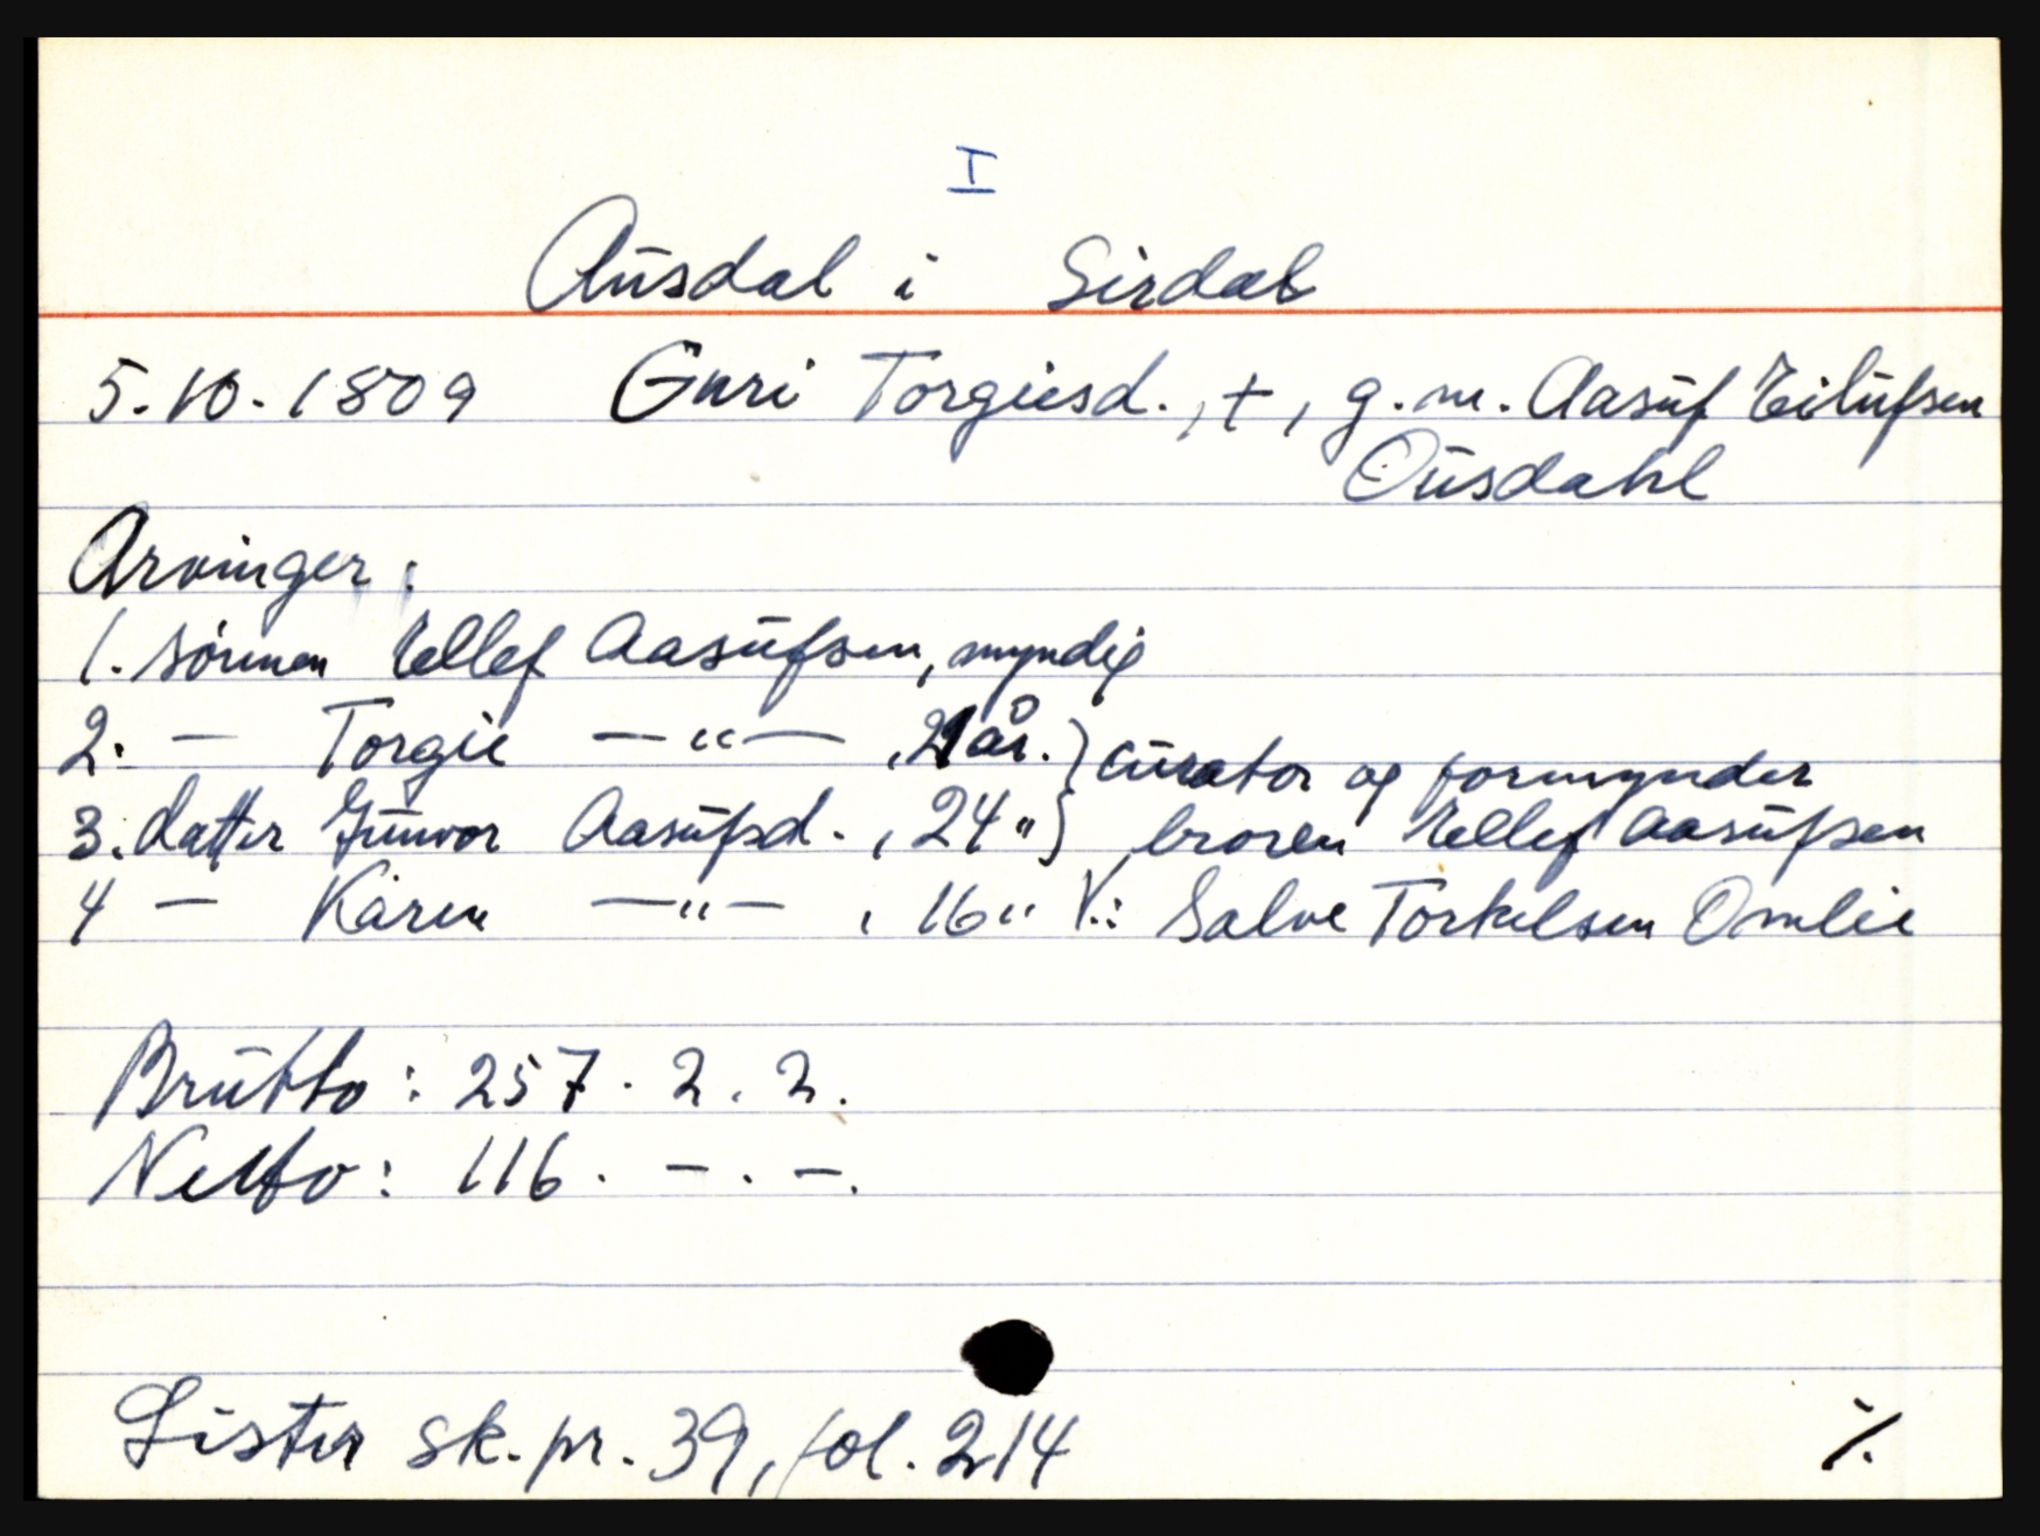 I
Ausdal i Sirdal
5.10.1809 Guri Torgiesd., +, g.m. Aasuf Eilufsen
Ousdahl
Arvinger:
1. sønnen Ellef Aasufsen, myndig
2. — Torgie —"— , 21 år. } curator og formynder
3. datter Gunvor Aasufsd. , 24 " } broren Ellef Aasufsen
4 — Karen —"— , 16 " V.: Salve Torkelsen Omlie
Brutto: 257. 2. 2.
Netto: 116. —. —.
Lister sk.pr. 39, fol. 214 ./.